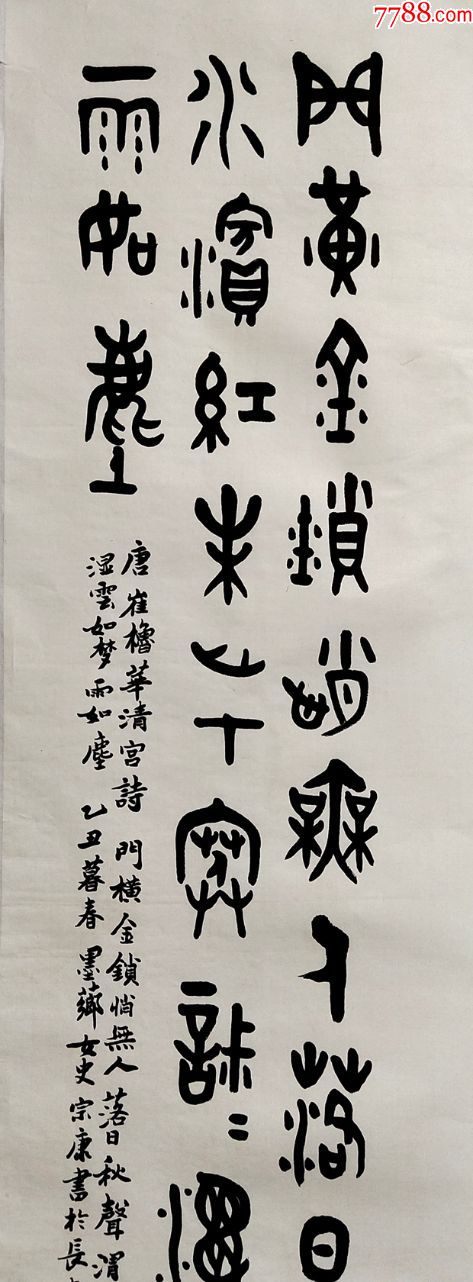 門黃金鎖悄無人落日
水濱紅寒寂〻濕
雨如塵
唐崔櫓華清宮詩 門橫金鎖悄無人 落日秋聲渭
湿雲如梦雨如塵 乙丑暮春 墨薌女史宗康書於長
7788.com